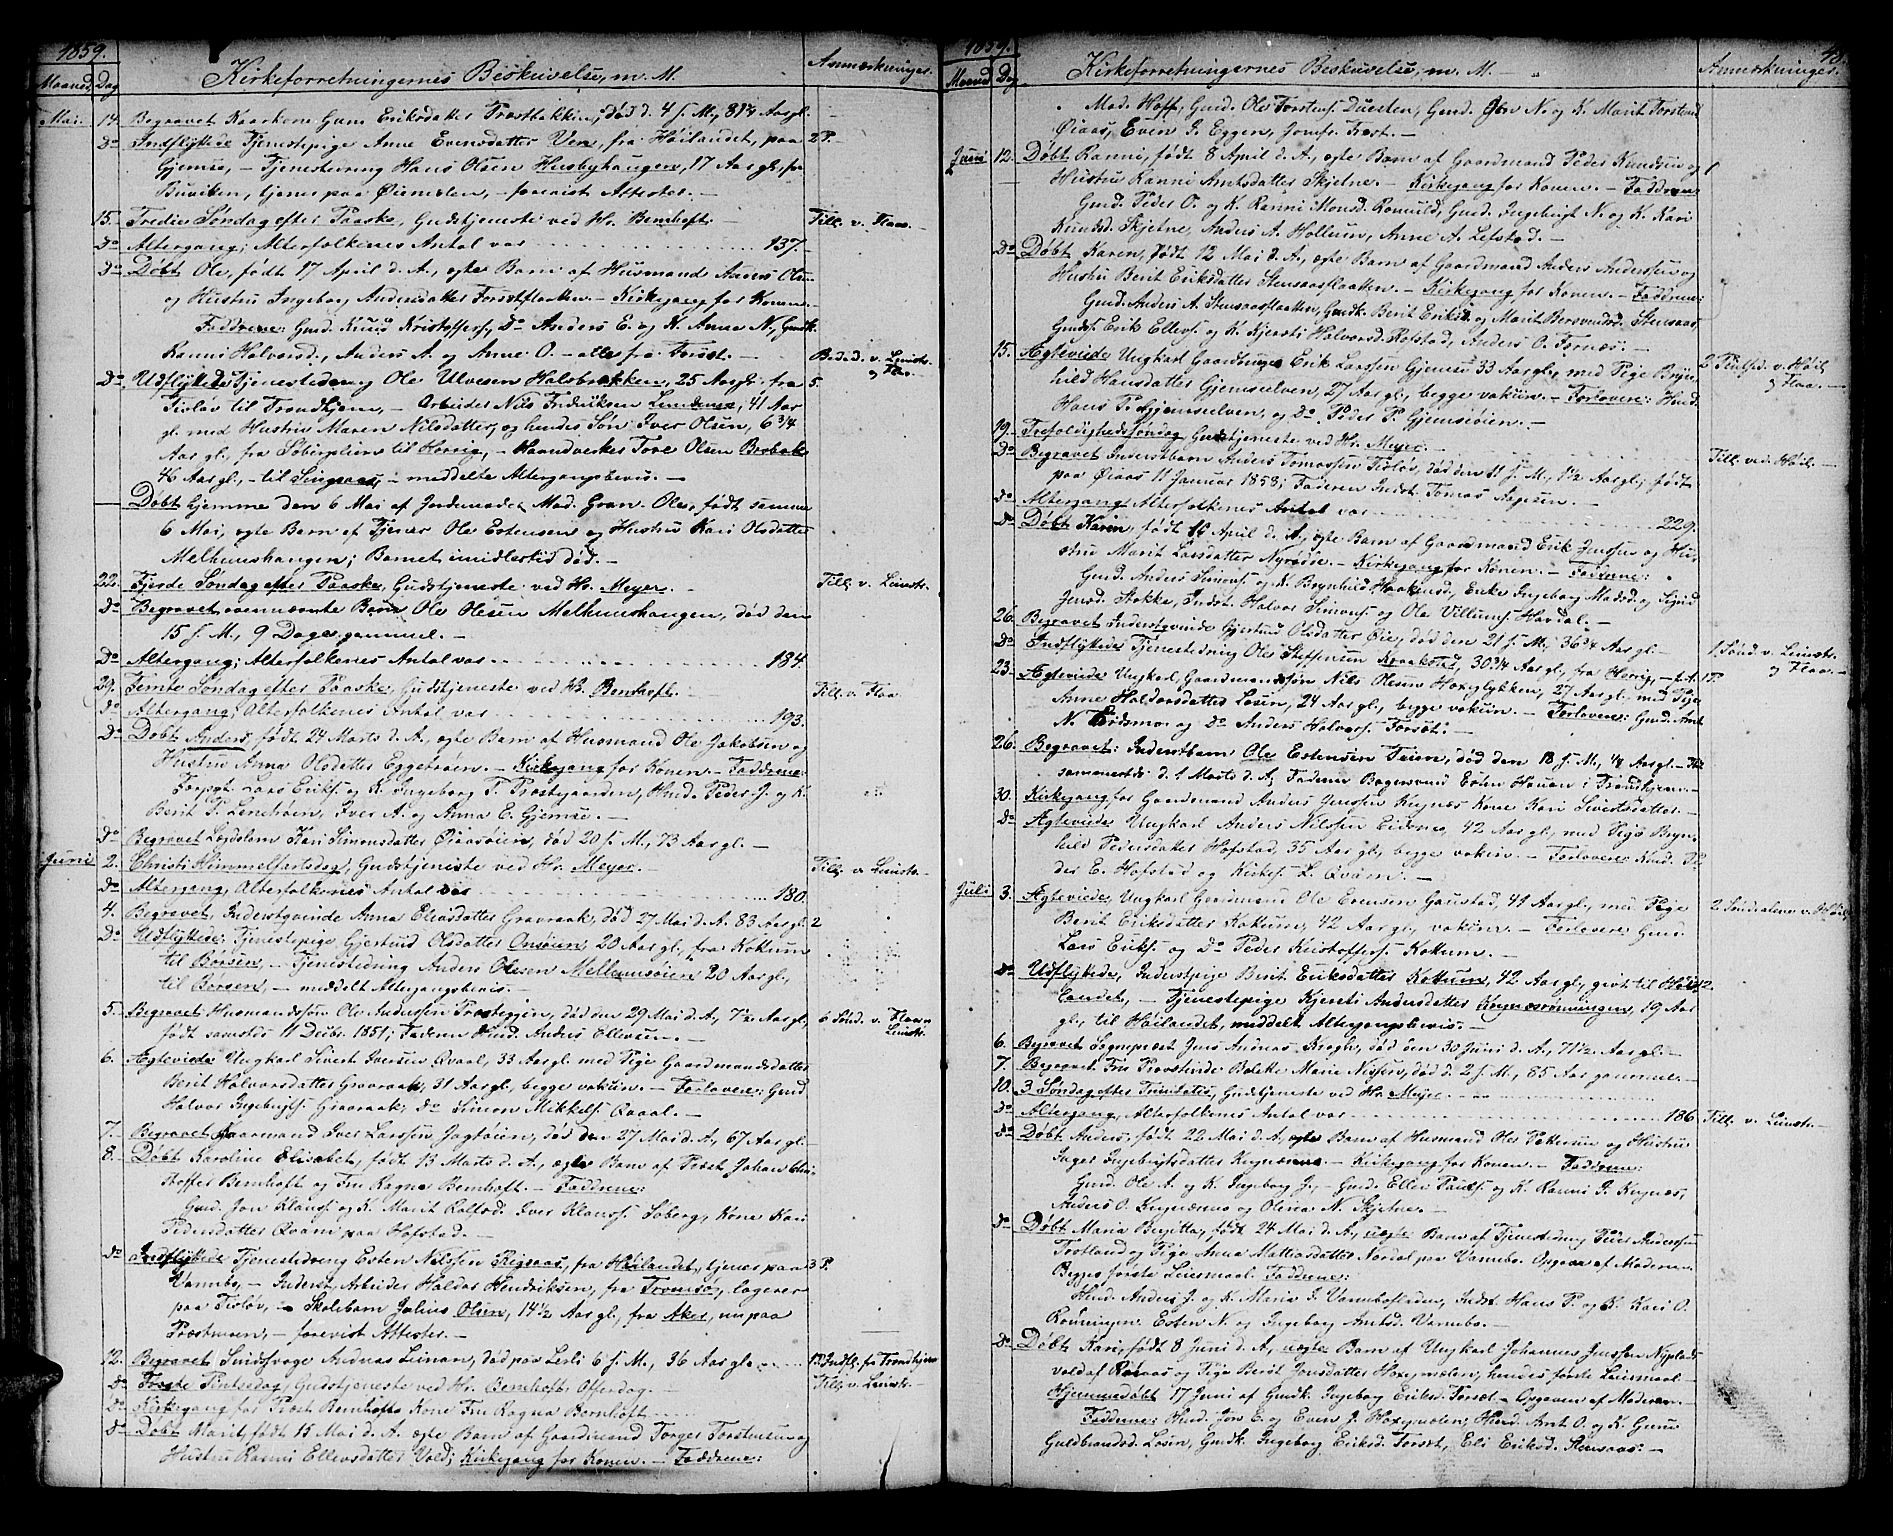 1859.
Maaned Dag Kirkeforretningernes Beskrivelse, m. M. Anmærkninger.
Mai. 14. Begravet Kaarkone Guru Eriksdatter Trøsthakken, død d. 4 f. M., 81¼ Aar gl.
Do Indflyttede Tjenestepige Anne Evensdatter Ven, fra Høilandet, paa 2 P.
Gjemse, – Tjenestedreng Hans Olsen Husbyhaugen, 17 Aar gl., fra
Buviken, tjener paa Øiemelen, – forevist Attester. –
15. Tredie Søndag efter Paaske, Gudstjeneste ved Hr. Bernhoft. – Till. v. Flaa. –
Do Altergang; Alterfolkenes Antal var 137. –
Do Døbt Ole, født 17 April d. A., ægte Barn af Husmand Anders Olsen
og Hustru Ingeborg Andersdatter Forsetflaatten. – Kirkegang for Konen. –
Faddrene: Gmd. Knud Kristoffers., Do Anders E. og K. Anne N., Gmdk.
Ranni Halvorsd., Anders A. og Anne O. – alle fra Forset. –
Do Udflyttede Tjenestedreng Ole Ulvesen Halsbrækken, 25 Aar gl. fra 5. Bed. d. v. Leinstr. og Flaa. –
Tisløv til Trondhjem, – Arbeider Nils Fredriksen Lundemo, 41 Aar
gl. med Hustru Maren Nilsdatter, og hendes Søn Iver Olsen, 6¾
Aar gl., fra Søberplien til Horrig, – Haandverker Tore Olsen Brobak
46 Aar gl., – til Singsaas, – meddelte Altergangsbevis. –
Døbt hjemme den 6 Mai af Jordemoder Mad. Gran Ole, født samme
6 Mai, ægte Barn af Tjener Ole Estensen og Hustru Kari Olsdatter
Melhuushaugen; Barnet imidlertid død. –
22. Fjerde Søndag efter Paaske, Gudstjeneste ved Hr. Meyer. – Till. v. Leinstr. –
Do Begravet ovennævnte Barn Ole Olesen Melhuushaugen, død den
15 f. M., 9 Dage gammel. –
Do Altergang; Alterfolkenes Antal var 184.
29. Femte Søndag efter Paaske, Gudstjeneste ved Hr. Bernhoft. – Till. v. Flaa. –
Do Altergang; Alterfolkenes Antal var 193.
Do Døbt Anders, født 24 Marts d. A., ægte Barn af Husmand Ole Jakobsen og
Hustru Anna Olsdatter Eggetrøen. – Kirkegang for Konen. – Faddrene:
Forpgt. Lars Eriks. og K. Ingeborg T. Præstgaarden, Hmd. Peder J. og K.
Berit P. Lenehøien, Iver A. og Anna E. Gjemse. –
Do Begravet Lægdslem Kari Simonsdatter Øiaasøien, død 20 f. M., 73 Aar gl. –
Juni 2. Christi Himmelfartsdag, Gudstjeneste ved Hr. Meyer. – Till. v. Leinstr. –
Do Altergang, Alterfolkenes Antal var 180.
4. Begravet, Inderstqvinde Anna Eliasdatter Gravraak, død 27 Mai d. A. 83 Aar gl. 2
Do Udflyttede: Tjenestepige Gjertrud Olsdatter Onsøien, 20 Aar gl., fra Kottum
til Børsen, – Tjenestedreng Anders Olesen Melhuusøien 20 Aar gl.,
til Børsen, – meddelt Altergangsbevis. –
5. Begravet Husmandssøn Ole Andersen Præsteggen, død den 29 Mai d. A., 7½ Aar gl., 6 Sønd. v. Flaa og Leinstr.
født samsteds 11 Decbr. 1851; Faderen Hmd. Anders Ellevsen. –
6. Ægteviede Ungkarl Sivert Iversen Qvaal, 33 Aar gl. med Pige Gaardmandsdatter
Berit Halvorsdatter Gravraak, 31 Aar gl., begge vaksin. – Forlovere: Gmd.
Halvor Ingebrigts. Gravraak; Do Simon Mikkels. Qvaal. –
7. Begravet Kaarmand Iver Larssen Jagtøien, død den 27 Mai d. A., 67 Aar gl. –
8. Døbt Karoline Elisabet, født 13 Marts d. A., ægte Barn af Præst Johan Chri-
stoffer Bernhoft og Fru Ragna Bernhoft. – Faddrene:
Gmd. Jon Klauss. og K. Marit Kalstad. Iver Klauss. Søberg, Kone Kari
Pedersdatter Qvam paa Hofstad. –
Do Indflyttede Tjenestedreng Esten Nilssen Rigsaas, fra Høilandet, tjener paa 3 P.
Vannebo, – Inderst, Arbeider Haldor Hendriksen, fra Tromsø, logerer
paa Tisløv, – Skolebarn Julius Olsen, 14½ Aar gl., fra Aker, nu paa
Præstmoen, – forevist Attester. –
12. Begravet Smedsvoge Andreas Leinan, død paa Lerli 6 f. M., 36 Aar gl. – 1 P. Indfl. fra Trondhjem
Do Første Pintsedag, Gudstjeneste ved Hr. Bernhoft. Offerdag. – Till. v. Leinstr. –
Do Kirkegang for Præst Bernhofts Kone Fru Ragna Bernhoft.
Do Døbt Marit, født 15 Mai d. A. ægte Barn af Gaardmand Torger Torstensen og
Hustru Ranni Ellevsdatter Vold; Kirkegang for Konen. – Faddrene:
1859. 48.
Maaned Dag Kirkeforretningernes Beskrivelse, m. M. – Anmærkninger.
Mad. Hoff, Gmd. Ole Torstens. Duesten, Gmd. Jon N. og K. Marit Torstensd.
Øiaas, Even J. Eggen, Jomfr. Træst. –
Juni 12. Døbt Ranni, født 8 April d. A., ægte Barn af Gaardmand Peder Knudsen og 1
Hustru Ranni Arntsdatter Skjetne. – Kirkegang for Konen. – Faddrene
Gmd. Peder O. og K. Ranni Monsd. Romuld, Gmd. Ingebrigt N. og K. Kari
Knudsd. Skjetne, Anders A. Hollum, Anne A. Lefstad. –
Do Døbt Karen, født 12 Mai d. A., ægte Barn af Gaardmand Anders Anderssen og
Hustru Berit Eriksdatter Stensaasflaatten. – Kirkegang for Konen. – Faddrene:
Gmd. Anders A. Stensaasflaatten, Gmdk. Berit Eriksd. og Marit Bersvendsd. Stensaas,
Gmds. Erik Ellevs. og K. Kjersti Halvorsd. Rofstad, Anders O. Fornæs. –
15. Ægteviede Ungkarl Gaardbruger Erik Larssen Gjemse 33 Aar gl., med Pige Bryn- 2 Pintsed. v. Høil. og Flaa. –
hild Hansdatter Gjemselven, 27 Aar gl., begge vaksin. – Forlovere: Hmd.
Hans P. Gjemselven, og Do Peder P. Gjemsøien. –
19. Trefoldighedssøndag Gudstjeneste ved Hr. Meyer. –
Do Begravet Inderstbarn Anders Tomassen Tisløv, død den 11 f. M., 1½ Aar gl., født Till. ved Høil. –
paa Øiaas 11 Januar 1858; Faderen Inds. Tomas Aagesen.
Do Altergang, Alterfolkenes Antal var 229.
Do Døbt Karen, født 16 April d. A., ægte Barn af Gaardmand Erik Jenssen og Hu-
stru Marit Larsdatter Nyrødse. – Kirkegang for Konen. – Faddrene:
Gmd. Anders Simons. og K. Brynhild Haakensd., Enke Ingeborg Madsd. og Sigrid
Jensd. Stokke, Indst. Halvor Simons. og Ole Villums. Havdal. –
26. Begravet Inderstqvinde Gjertrud Olsdatter Øie, død den 21 f. M., 36¾ Aar gl. –
Do Indflyttede Tjenestedreng Ole Steffensen Kraakstad, 30¾ Aar gl., fra Horrig, – f. A. 1 P. 1 Sønd. v. Leinstr. og Flaa. –
23. Ægteviede Ungkarl, Gaardmandssøn Nils Olesen Hoxeglykken, 27 Aar gl., med Pige
Anne Haldorsdatter Losen, 24 Aar gl., begge vaksin. – Forlovere: Gmd. Arnt
N. Eidsmo og Do Anders Halvors. Forset. –
26. Begravet: Inderstbarn Ole Estensen Teien, død den 18 f. M., ¼ Aar gl. – født
sammesteds d. 1 Marts d. A., Faderen Bagersvend Esten Hansen i Trondhjem. –
30. Kirkegang for Gaardmand Anders Jenssen Kregnes Kone Kari Sivertsdatter. –
Do Ægteviede Ungkarl Anders Nilssen Eidsmo, 42 Aar gl., med Pige Bryn-
hild Pedersdatter Hofstad, 35 Aar gl., begge vaksin. – Forlovere Kmd. Pe-
der E. Hofstad og Kirkes. L. Qvam. –
Juli 3. Ægteviede, Ungkarl Gaardmand Ole Evensen Gaustad, 41 Aar gl., med Pige 2 Søndagene v. Høil.
Berit Eriksdatter Kottum, 42 Aar gl., vaksin. – Forlovere Gmd.
Lars Eriks. og Do Peder Kristoffers. Kottum. –
Do Udflyttede, Inderstpige Berit Eriksdatter Kottum, 42 Aar gl., givt til Høi- 2.
landet, – Tjenestepige Kjersti Andersdatter Kregnæsrønningen, 19 Aar
gl., til Høilandet, meddelt Altergangsbevis. –
6. Begravet Sognepræst Jens Andreas Krogh, død den 30 Juni d. A., 71½ Aar gl. –
7. Begravet Fru Provstinde Bolette Maria Nissen, død d. 2 f. M., 85 Aar gammel. –
10. 3 Søndag efter Trinitatis, Gudstjeneste ved Hr. Meyer. –
Do Altergang, Alterfolkenes Antal var 186 Till. v. Leinstr. –
Do Døbt Anders, født 22 Mai d. A., ægte Barn af Husmand Ole Pettersen og Hustru
Inger Ingebrigtsdatter Kregnesmo. – Kirkegang for Konen. – Faddrene:
Gmd. Ole A. og K. Ingeborg J., – Gmd. Ellev Pauls. og K. Ranni J. Kregnes,
Anders O. Kregnesmo og Olina N. Skjetne. –
Do Døbt Maria Birgitta, født 24 Mai d. A., uægte Barn af Tjenestedreng Peder Anderssen
Trotland og Pige Anna Mattiasdatter Nordal paa Vannebo. Opgaven af Moderen.
Begges første Leiermaal. Faddrene:
Hmd. Anders J. og K. Maria J. Vannebosletten, Indst. Hans P. og K. Kari O.
Rønningen, Esten N. og Ingeborg Arntsd. Vannebo. –
Do Døbt Kari, født 8 Juni d. A., uægte Barn af Ungkarl Johannes Jenssen Nyplads-
vold af Røraas og Pige Berit Jonsdatter Hoxegmælen, hendes første Leiermaal –
Hjemmedøbt 17 Juni af Gmdk. Ingeborg Eriksd. Forset – Opgaven af Moderen. –
Faddrene: Hmd. Jon E. og Even J. Hoxegmælen; Hmd. Arnt O. og K. Guru
Guldbrandsd. Losen, Gmdk. Ingeborg Eriksd. Forset, Eli Eriksd. Stensaas. –